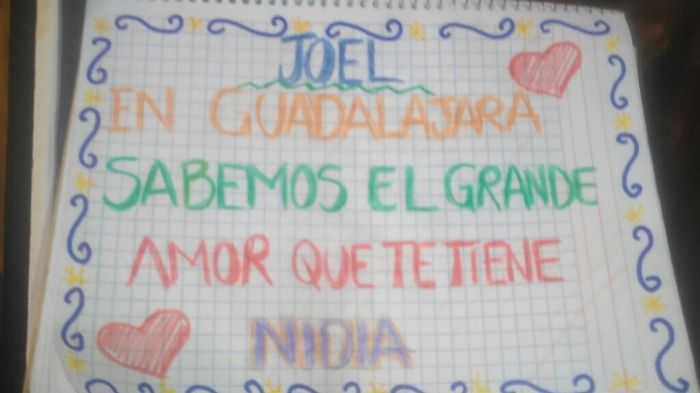 JOEL
EN GUADALAJARA
SABEMOS EL GRANDE
AMOR QUE TE TIENE
NIDIA